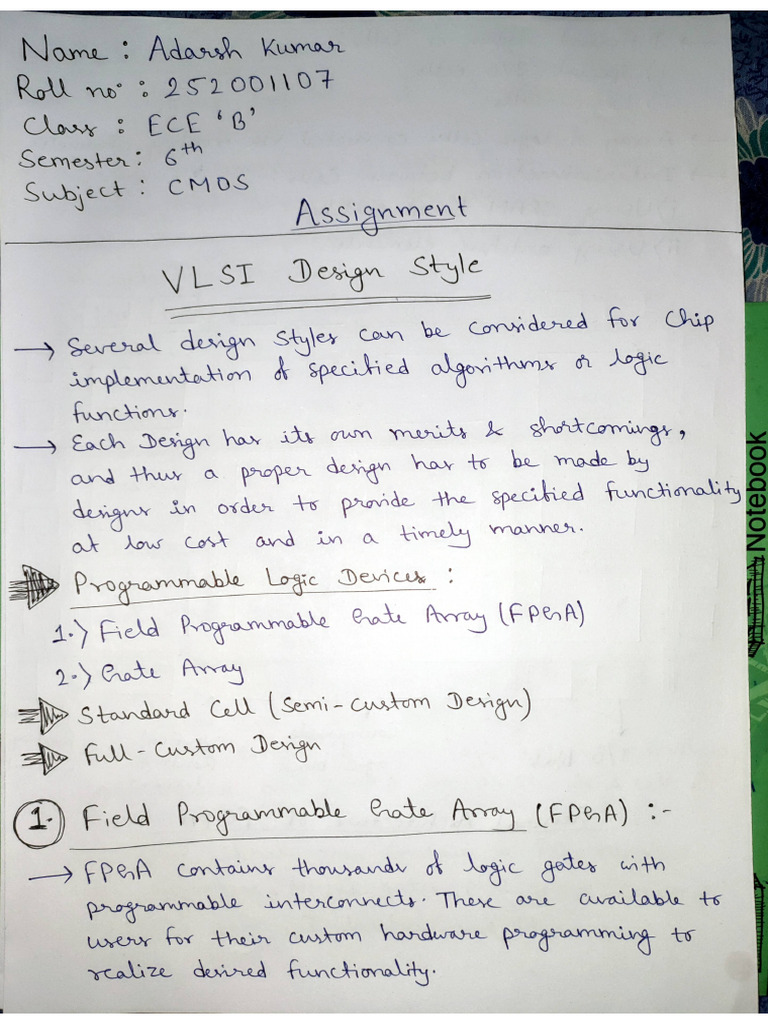 Name : Adarsh Kumar
Roll no : 252001107
Class : ECE 'B'
Semester : 6th
Subject : CMOS
Assignment
VLSI Design Style
→ Several design styles can be considered for chip
implementation of specified algorithms or logic
functions.
→ Each Design has its own merits & shortcomings,
and thus a proper design has to be made by
designs in order to provide the specified functionality
at low cost and in a timely manner.
Programmable Logic Devices :
1.) Field Programmable Gate Array (FPGA)
2.) Gate Array
Standard Cell (Semi-Custom Design)
Full-Custom Design
1. Field Programmable Gate Array (FPGA) :-
→ FPGA contains thousands of logic gates with
programmable interconnects. These are available to
users for their custom hardware programming to
realize desired functionality.
Notebook